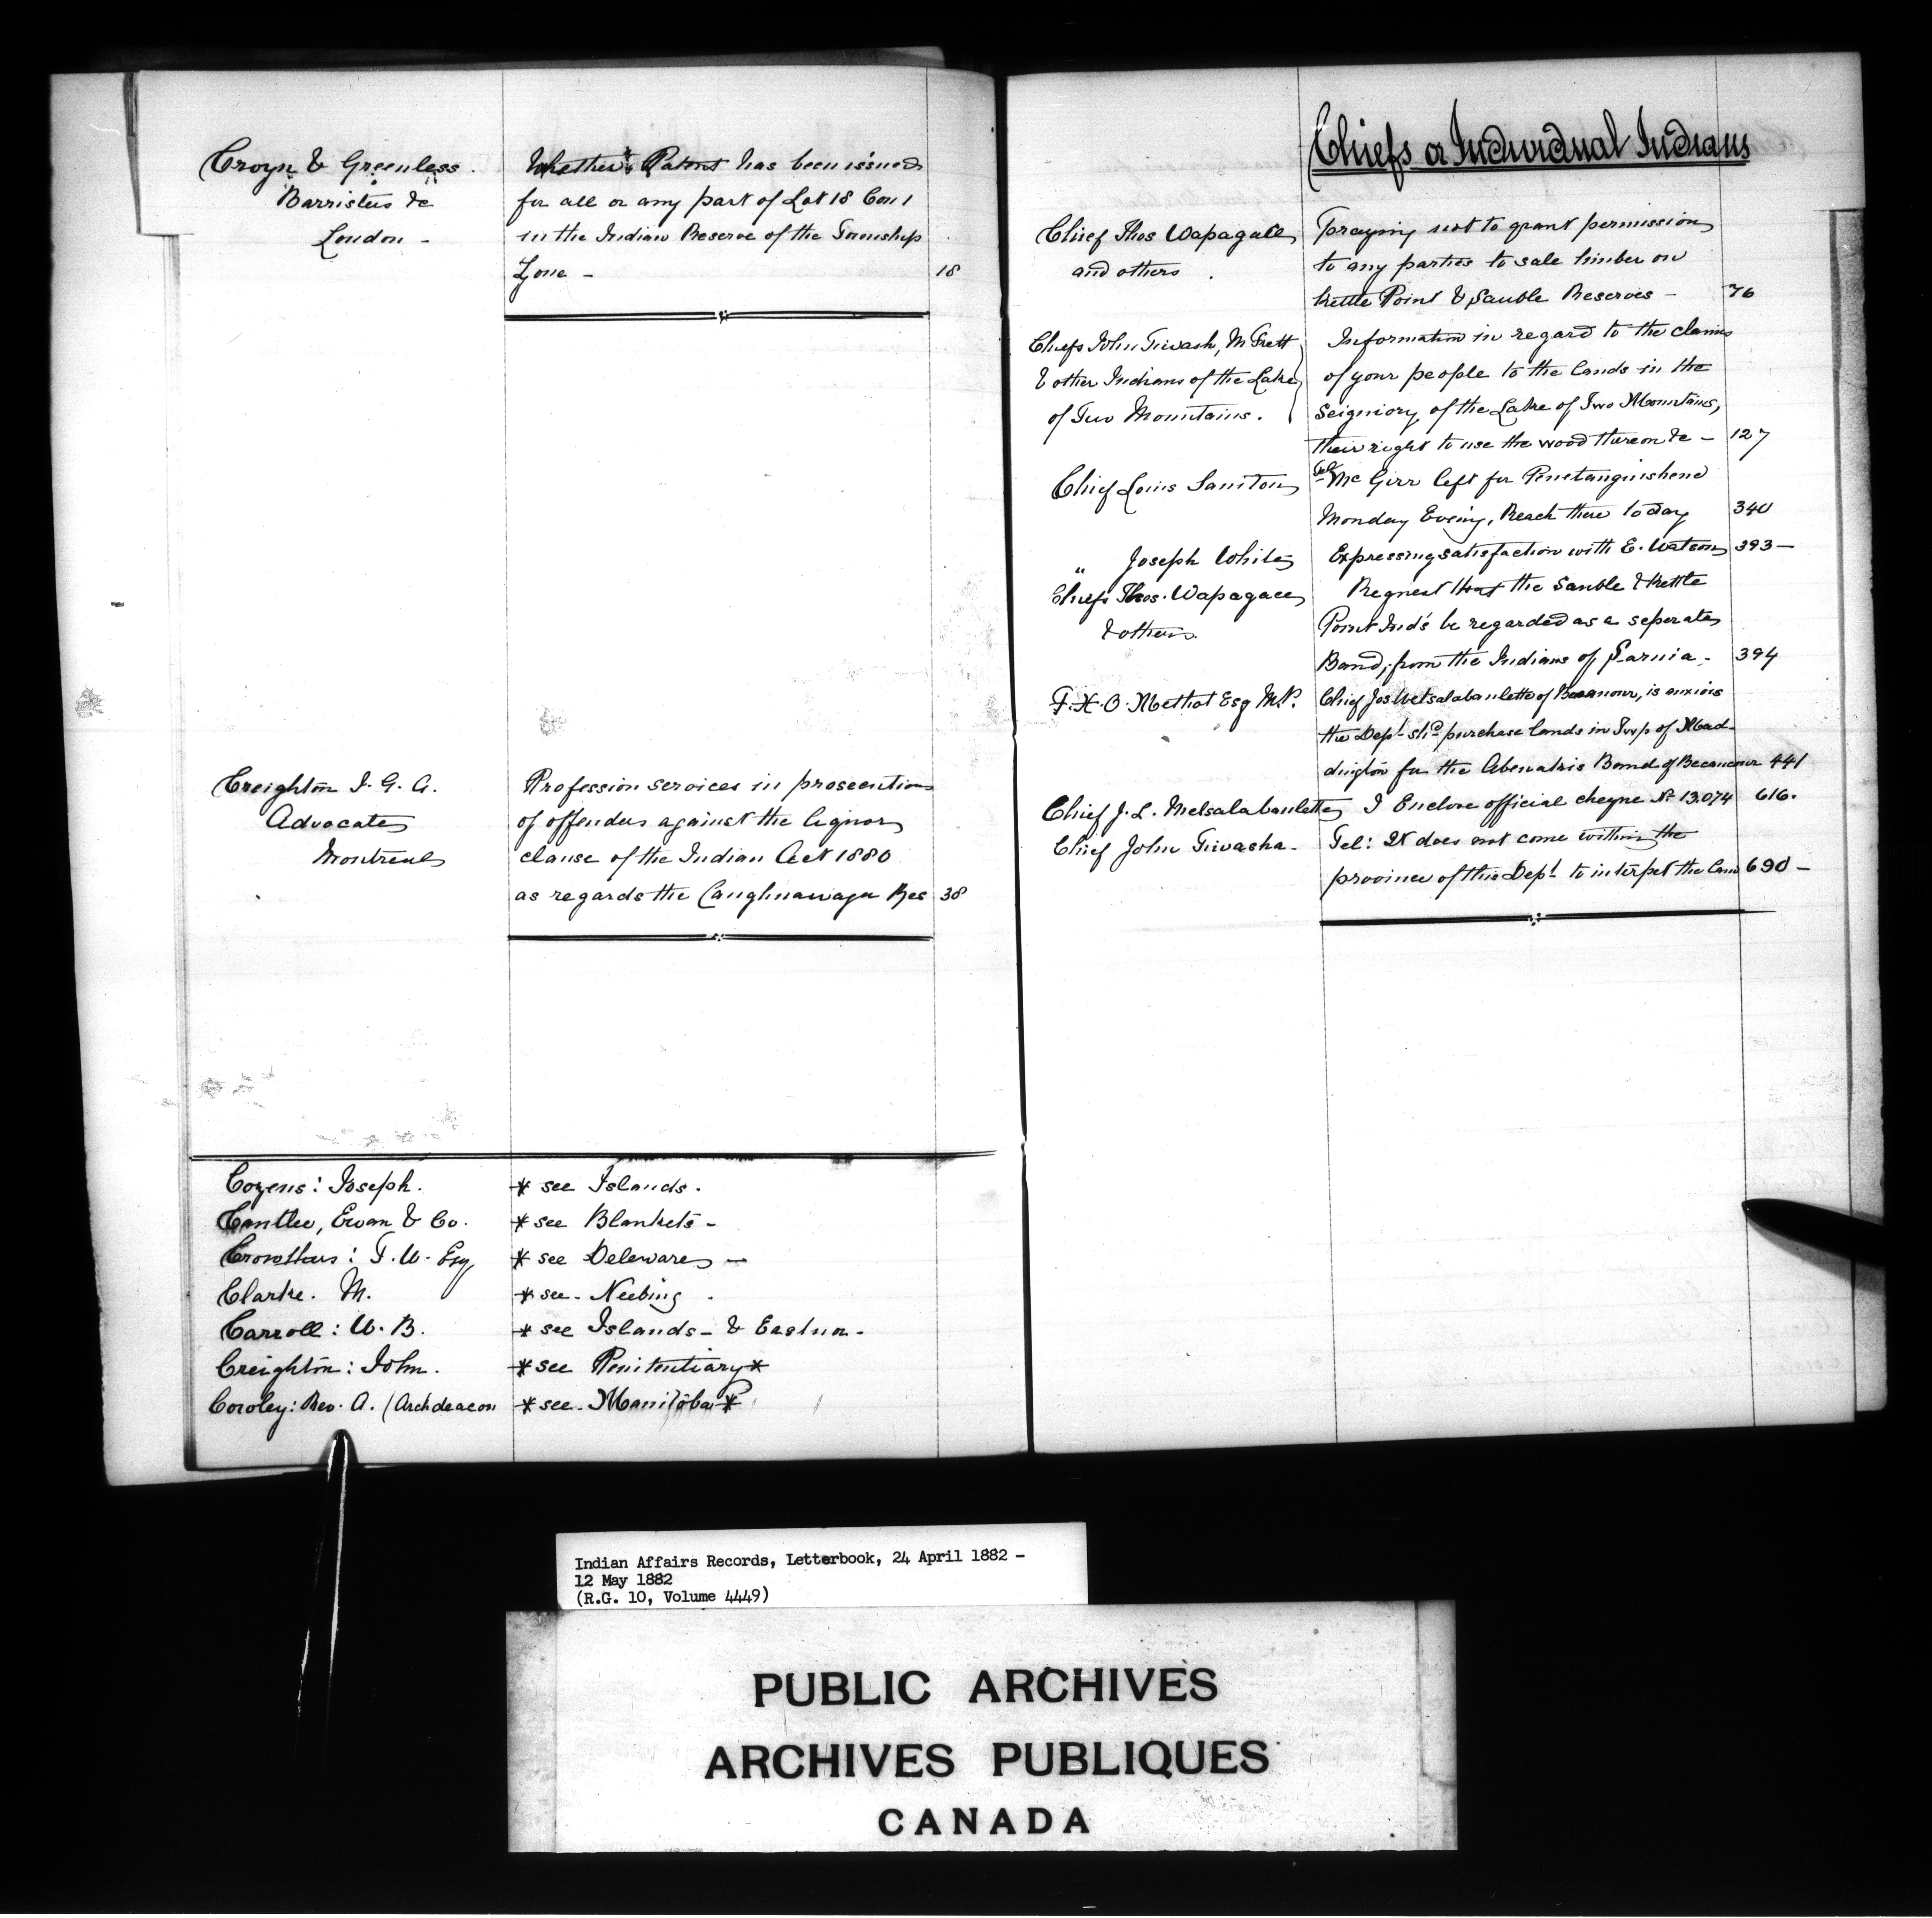 Croyn & Greenless. Whether a Patent has been issued
Barristers &c for all or any part of Lot 18 Con 1
London - in the Indian Reserve of the Township
Zone - 18
Creighton J. G. A. Profession services in prosecution
Advocate of offenders against the liquor
Montreal clause of the Indian Act 1880
as regards the Caughnawaga Res 38
Cozens: Joseph. * see Islands.
Cantlie, Ewan & Co. * see Blankets -
F. W. Esq * see Delewares -
Clarke. M. * see - Neebing.
Carroll: W. B. * see Islands - &
Creighton: John. * see Penitentiary *
Cowley: Rev. A. (Archdeacon * see - Manitoba *
Chiefs or Individual Indians
Chief Thos Wapagace Praying not to grant permission
and others. to any parties to sale timber on
Kettle Point & Sauble Reserves - 76
Chiefs John Tiwash, M Frett Information in regard to the claims
& other Indians of the Lake of your people to the lands in the
of Two Mountains. Seigniory of the Lake of Two Mountains,
their right to use the wood thereon &c - 127
Chief Louis Saniton Tel Mc Girr left for Penetanguishene
Monday Evening, Reach there today 340
" Joseph White Expressing satisfaction with E. Watson 393 -
Chiefs Thos. Wapagace Request that the Sauble & Kettle
& others. Point Ind's be regarded as a seperate
Band, from the Indians of Sarnia - 394
F. X. O. Methot Esq M.P. Chief Jos Metsalabanlette of Becancour, is anxious
the Dept. shd. purchase lands in Twp of Mad-
dington for the Abenakis Band of Becancour 441
Chief J. L. Metsalabanlette I Enclose official cheque No 13.074 616.
Chief John Tiwasha - Tel: It does not come within the
province of this Dept. to interpet the law 690 -
Indian Affairs Records, Letterbook, 24 April 1882 -
12 May 1882
(R.G. 10, Volume 4449)
PUBLIC ARCHIVES
ARCHIVES PUBLIQUES
CANADA